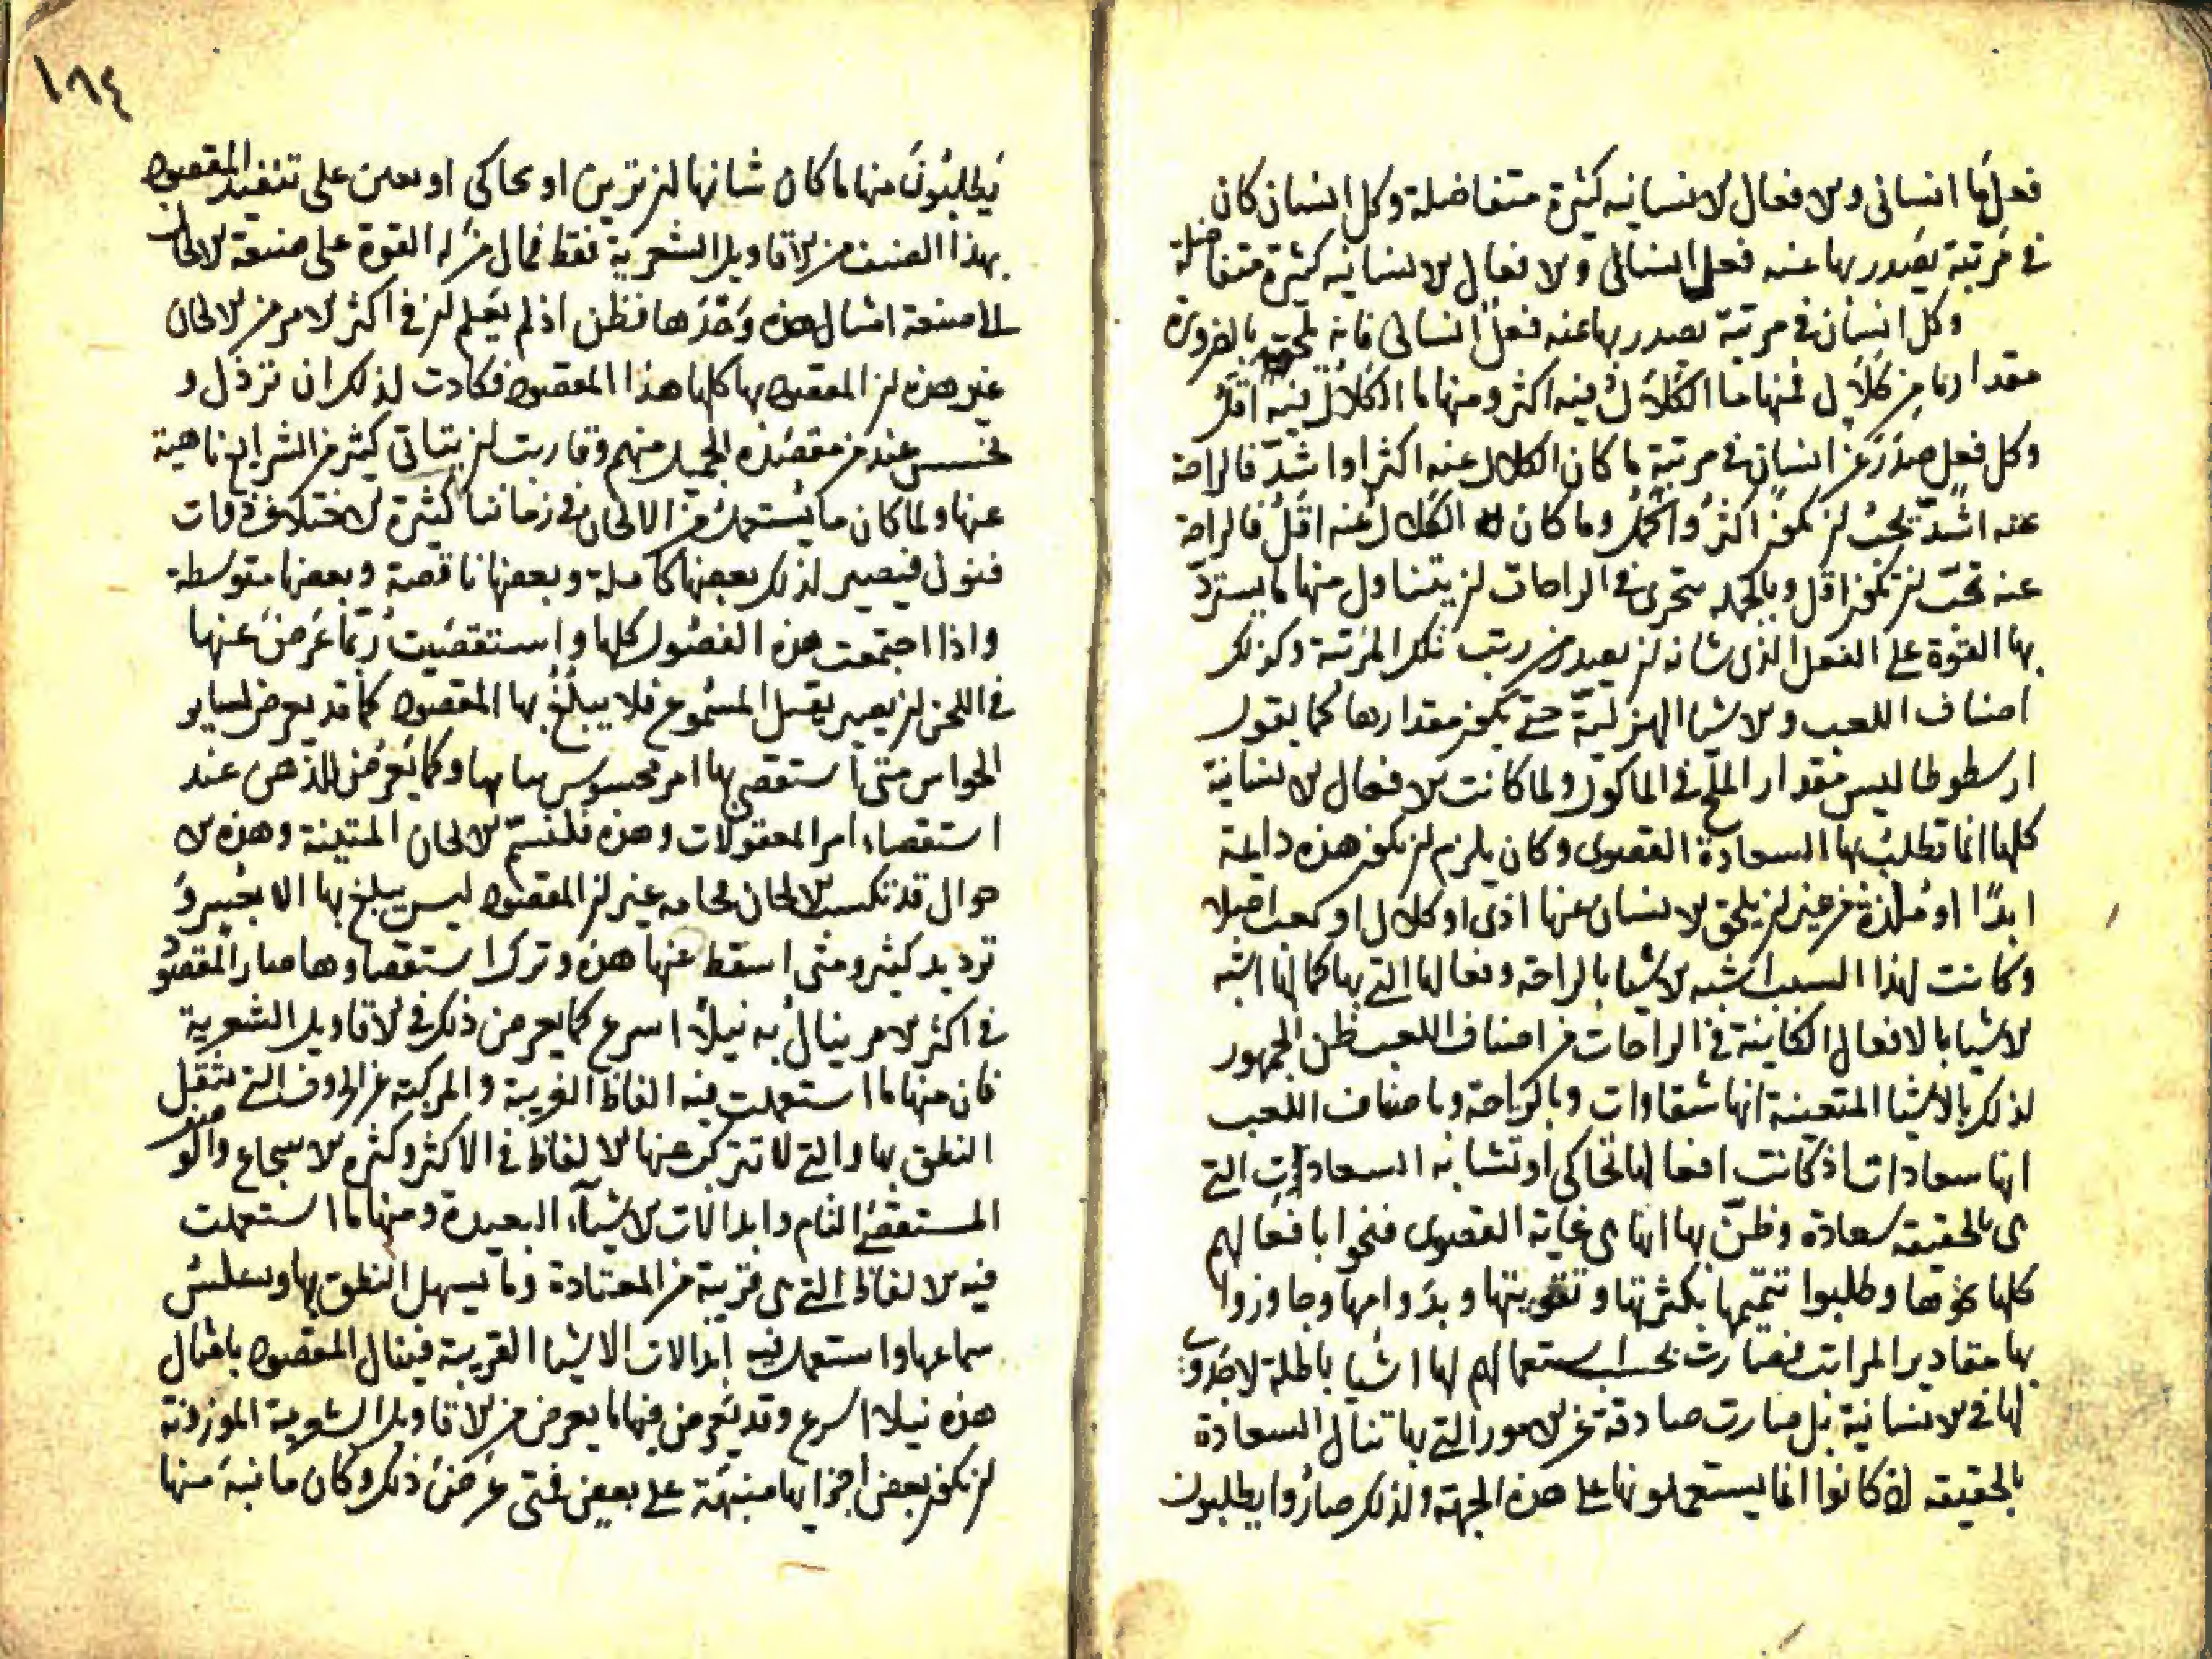 فعل ما انسانى و الافعال الانسانيه كثيرة متفاضلة وكل انسان كان
فى مرتبة يصدر بها عنه فعل انسانى و الافعال الانسانيه كثيرة متفاضلة
وكل انسان فى مرتبة يصدر بها عنه فعل انسانى فانه يلحقه بالضرورة
مقدار ما من كلال فمنها ما الكلال فيه اكثر ومنها ما الكلال فيه اقل
وكل فعل صدر عن انسان فى مرتبة ما كان الكلال عنه اكثر او اشد فالراحة
عنه اشد يجب ان تكون اكثر واكمل وما كان الكلال عنه اقل فالراحة
عنه تجب ان تكون اقل وبالجملة يتحرى فى الراحات ان يتناول منها ما يسترد
بها القوة على الفعل الذى شانه ان يصدر عن رتب تلك المرتبة وكذلك
اصناف اللعب و الاشيا الهزلية حتى يكون مقدارها كما يقول
ارسطوطاليس مقدار الملح فى الماكول ولما كانت الافعال الانسانية
كلها انما تطلب بها السعادة القصوى وكان يلزم ان تكون هذه دايمة
ابدا او ملذة من غير ان يلحق الانسان عنها اذى او كلال او تعب اصلا
وكانت لهذا السبب اشبه الاشيا بالراحة وفعالها التى بها كما انها اشبه
الاشيا بالافعال الكاينة فى الراحات من اصناف اللعب ظن الجمهور
لذلك بالاشيا المتعبة انها شقاوات وبالراحة وباصناف اللعب
انها سعادات اذ كانت افعالها تحاكى او تشابه السعادات التى
هى بالحقيقة سعادة وظن بها انها هى غاية القصوى فنحوا بافعالهم
كلها نحوها وطلبوا تتميمها بكثرتها وتقويتها وبدوامها وجاوزوا
بها مقادير المراتب فصارت بحسب استعمالهم لها اشيا باطلة لا جدوى
لها فى الانسانية بل صارت صادفة عن الامور التى بها تنال السعادة
بالحقيقة اذ كانوا انما يستعملونها على هذه الجهة ولذلك صاروا يطلبون
١٨٤
يطلبون منها ما كان شانها ان تزين او تحاكى او تعين على تنفيذ المقصود
بهذا الصنف من الاقاويل الشعرية فقط فمال من له القوة على صنعة الالحان
الى صنعة امثال هذه وحدها فظن اذ لم يعلم ان فى اكثر الامر من الالحان
غير هذه ان المقصود بها كلها هذا المقصود فكادت لذلك ان ترذل و
تخسس عند من مقصده الجميل منهم وقاربت ان يتاتى كثير من الشرايع ناهية
عنها ولما كان ما يستعمل من الالحان فى زماننا كثيرة الاختلاف ذوات
فنول فيصير لذلك بعضها كاملة وبعضها ناقصة وبعضها متوسطة
واذا اجتمعت هذه الفصول كلها واستقصيت ربما عرض عنها
فى اللحن ان يصير يقل المسموع فلا يبلغ بها المقصود كما قد يعرض لساير
الحواس متى استقصى بها امر محسوس ساها وكما يعرض للذهن عند
استقصاء امر المعقولات وهذه فلنسم الالحان المتينة وهذه الا
حوال قد تكسب الالحان فخامه غير ان المقصود ليس يبلغ بها الا بعسر و
ترديد كثير ومتى اسقط عنها هذه وترك استقصاوها صار المقصود
فى اكثر الامر ينال به نيلا اسرع كما يعرض ذلك فى الاقاويل الشعرية
فان منها ما استعملت فيه الفاظ الغريبة و المركبة من الحروف التى يثقل
النطق بها والتى لا تتركب عنها الالفاظ فى الاكثر وكثرة الاسجاع والوزن
المستقصى التام وابدالات الاشيآء البعيدة ومنها ما استعملت
فيه الالفاظ التى هى قريبة من المعتادة وما يسهل النطق بها وسلس
سماعها واستعمل فيه ابدالات الاشيا القريبة فينال المقصود بامثال
هذه نيلا اسرع وقد يعرض فيها ما يعرض من الاقاويل الشعرية الموزونة
ان تكون بعض اجزايها منبهة على بعض فتى عرض ذلك وكان ما نبه منها